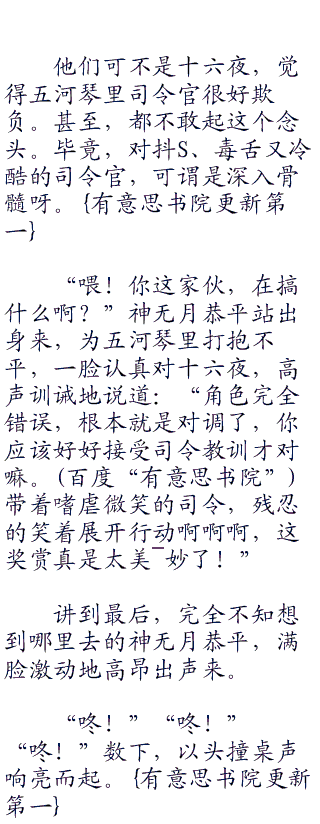 他们可不是十六夜，觉
得五河琴里司令官很好欺
负。甚至，都不敢起这个念
头。毕竟，对抖S、毒舌又冷
酷的司令官，可谓是深入骨
髓呀。{有意思书院更新第
一}
“喂！你这家伙，在搞
什么啊？”神无月恭平站出
身来，为五河琴里打抱不
平，一脸认真对十六夜，高
声训诫地说道：“角色完全
错误，根本就是对调了，你
应该好好接受司令教训才对
嘛。(百度“有意思书院”)
带着嗜虐微笑的司令，残忍
的笑着展开行动啊啊啊，这
奖赏真是太美¯妙了！”
讲到最后，完全不知想
到哪里去的神无月恭平，满
脸激动地高昂出声来。
“咚！”“咚！”
“咚！”数下，以头撞桌声
响亮而起。{有意思书院更新
第一}